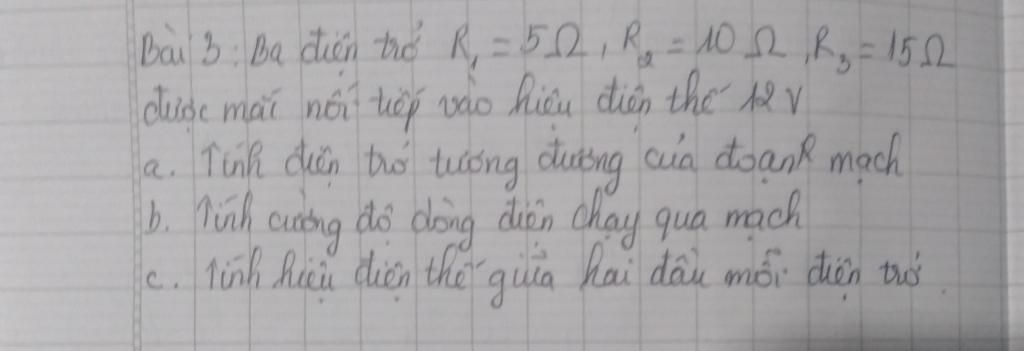 Bài 3: Ba điện trở R₁ = 5Ω, R₂ = 10 Ω, R₃ = 15Ω
được mắc nối tiếp vào hiệu điện thế 12 V
a. Tính điện trở tương đương của đoạnh mạch
b. Tính cường độ dòng điện chạy qua mạch
c. Tính hiệu điện thế giữa hai đầu mỗi điện trở.